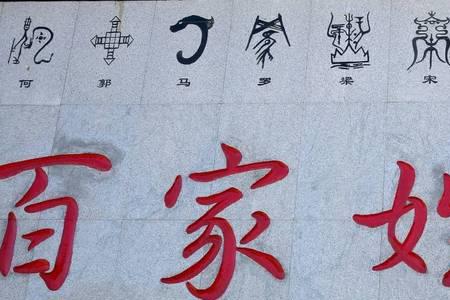 何 郭 马 罗 梁 宋
百家姓